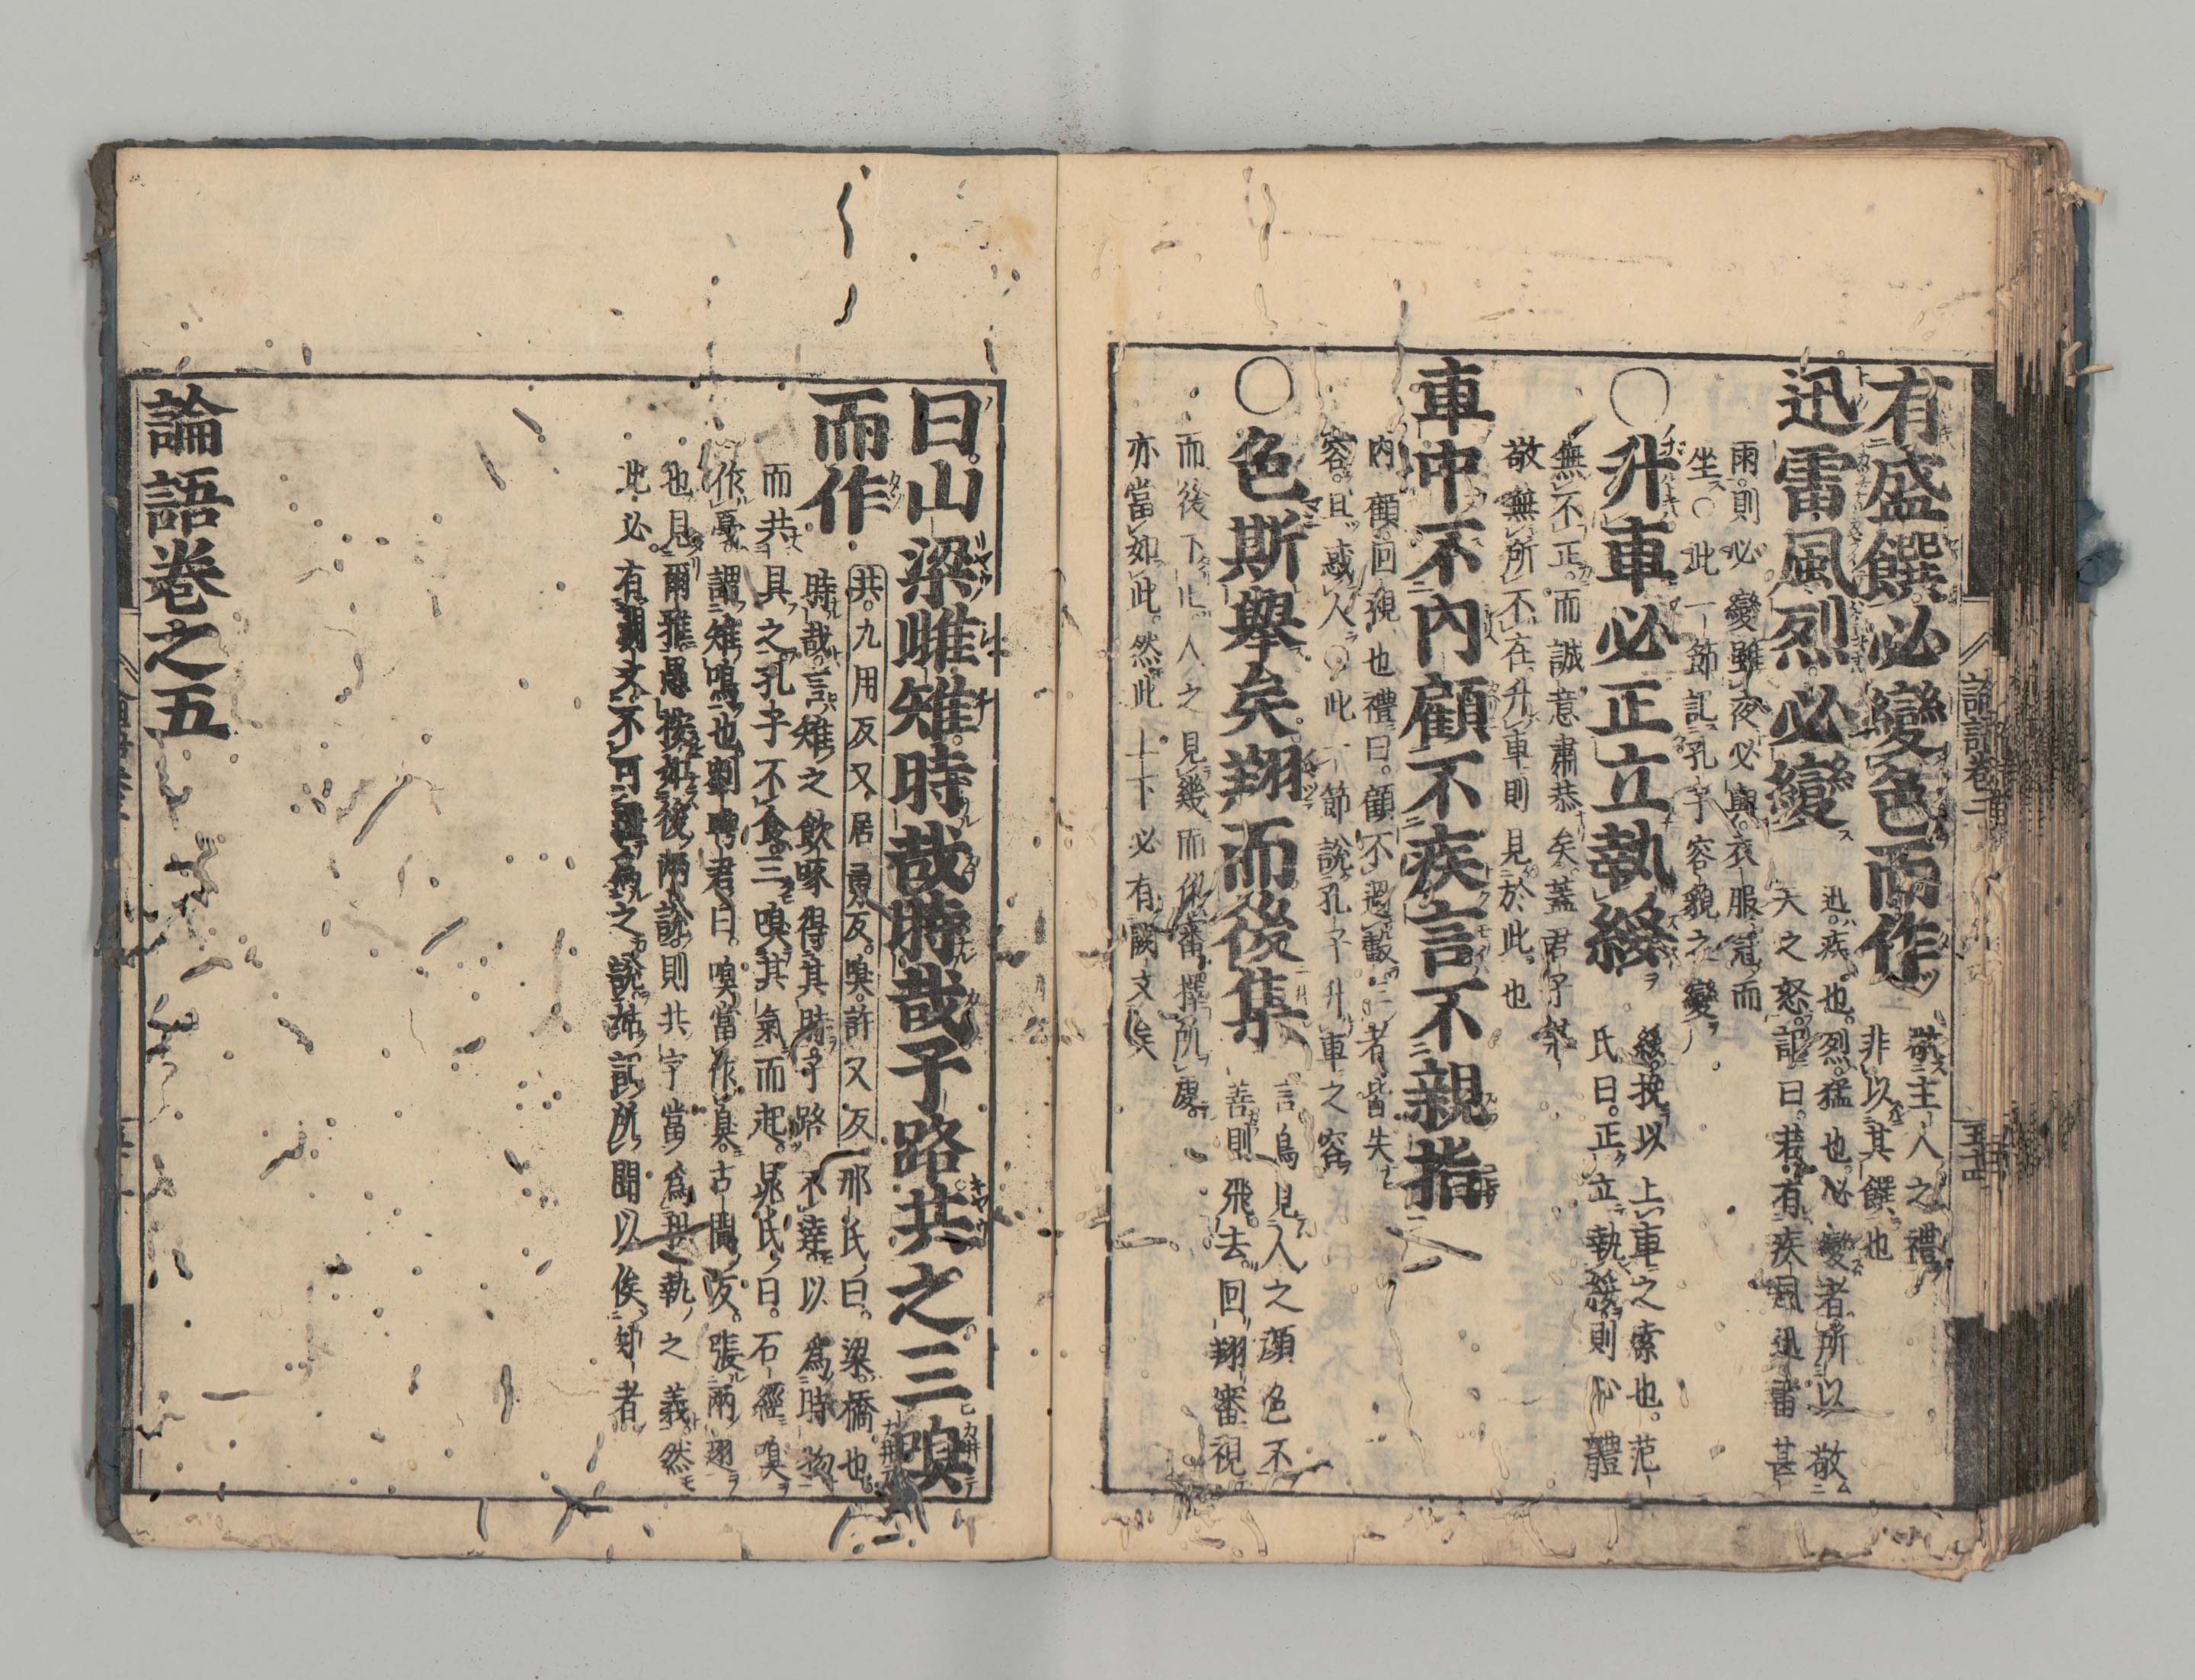 有盛饌必變色而作 敬主人之禮
非以其饌也
迅雷風烈必變 迅疾也烈猛也必變者所以敬
天之怒記曰若有疾風迅雷甚
雨則必變雖夜必興衣服冠而
坐○此一節記孔子容貌之變
○升車必正立執綏 綏挽以上車之索也范
氏曰正立執綏則心體
無不正而誠意肅恭矣蓋君子莊
敬無所不在升車則見於此也
車中不內顧不疾言不親指
內顧回視也禮曰顧不過轂三者皆失
容且惑人○此一節說孔子升車之容
○色斯舉矣翔而後集 言鳥見人之顏色不
善則飛去回翔審視
而後下止人之見幾而作審擇所處
亦當如此然此上下必有闕文矣
曰山梁雌雉時哉時哉子路共之三嗅
而作
共九用反又居勇反嗅許又反 邢氏曰梁橋也
時哉言雉之飲啄得其時子路不達以爲時物
而共具之孔子不食三嗅其氣而起晁氏曰石經嗅
作戞謂雉鳴也劉聘君曰嗅當作狊古闃反張兩翅
也見爾雅愚按如後兩說則共字當爲拱執之義然
此必有闕文不可彊爲之說姑記所聞以俟知者
論語卷之五